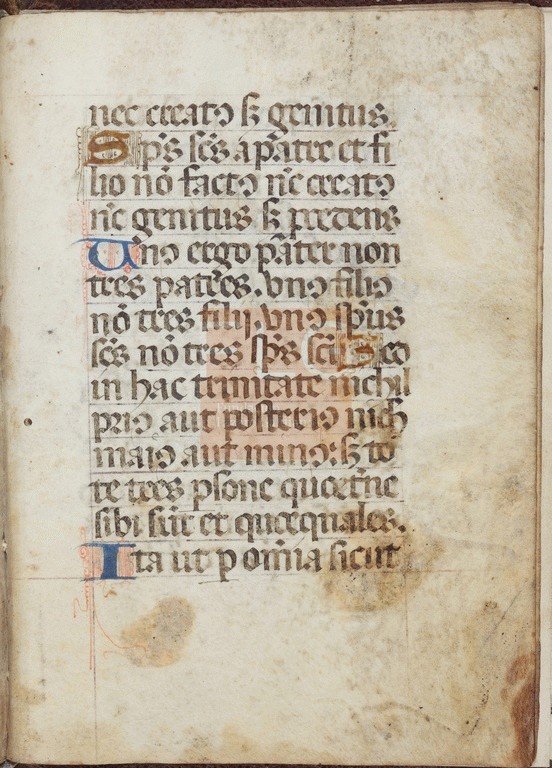 nec creatꝯ sꝫ genitus.
Sp̄s sc̄s a pr̄atre et fi
lio nō factꝯ nc̄ creatꝯ
nc̄ genitus sꝫ procens
Unꝯ ergo pāter non
tres patr̄es. vnꝯ filiꝯ
nō tres filij, vnꝯ sp̄us
sc̄s nō tres sp̄s sc̄i Seo
in hac trinitate nichil
priꝯ aut posteriꝯ nich
maiꝯ aut minꝯ: sꝫ to
te tres ꝑsone quoet̄ne
sibi sūt et quoequales.
Ita ut ꝑ om̄ia sicut